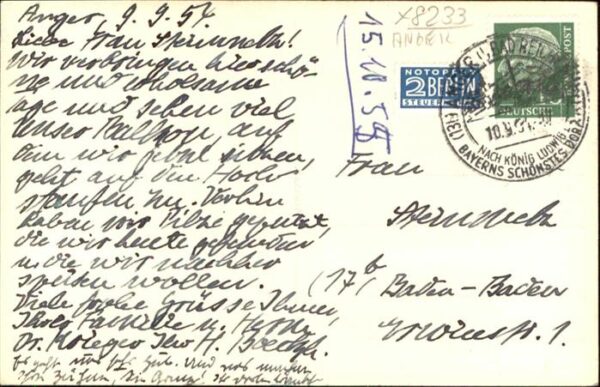 Anger, 9. 9. 54.
Liebe Frau Steinmetz!
Wir verbringen hier schö-
ne und erholsame
Tage und sehen viel
Unser Balkon, auf
dem wir jetzt sitzen,
geht auf den Hoch-
staufen zu. Vorhin
haben wir Pilze geputzt,
die wir heute gefunden
u. die wir nachher
speisen wollen.
Viele frohe Grüsse Ihnen,
Ihrer Familie u. Herrn
Dr. Ihr H.
Es geht uns gut. Und
X8233
ANGER
15.10.59
NOTOPFER
2 BERLIN
STEUERMARKE
DEUTSCHE BUNDESPOST
BAD REICHENHALL
10.9.54
NACH KÖNIG LUDWIG I
BAYERNS SCHÖNSTES DORF
Frau
Steinmetz
(17b
Baden-Baden